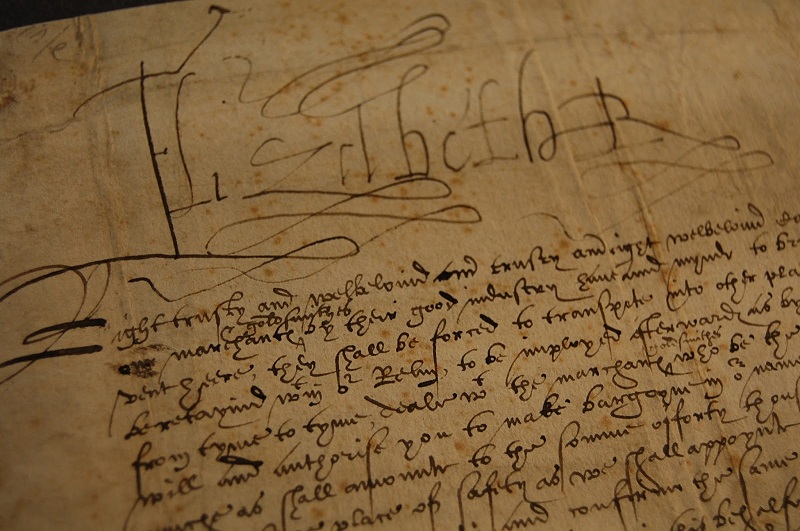 Elizabeth R
Right trusty and welbelovid and trusty and right welbelovid
goldsmithes
our marchantes by their good industry have and mynde to
vent heere, they shall be forced to transporte into other
be retaynid wtin or Relm, to be imployed afterwardes as
goldsmithes
from tyme to tyme, deale wt the marchantes who be the
will and authorise you to make bargayne in or name
as shall amounte to the somme of forty thous
place of safety as we shall appoynte
and conferme the same
behalfe